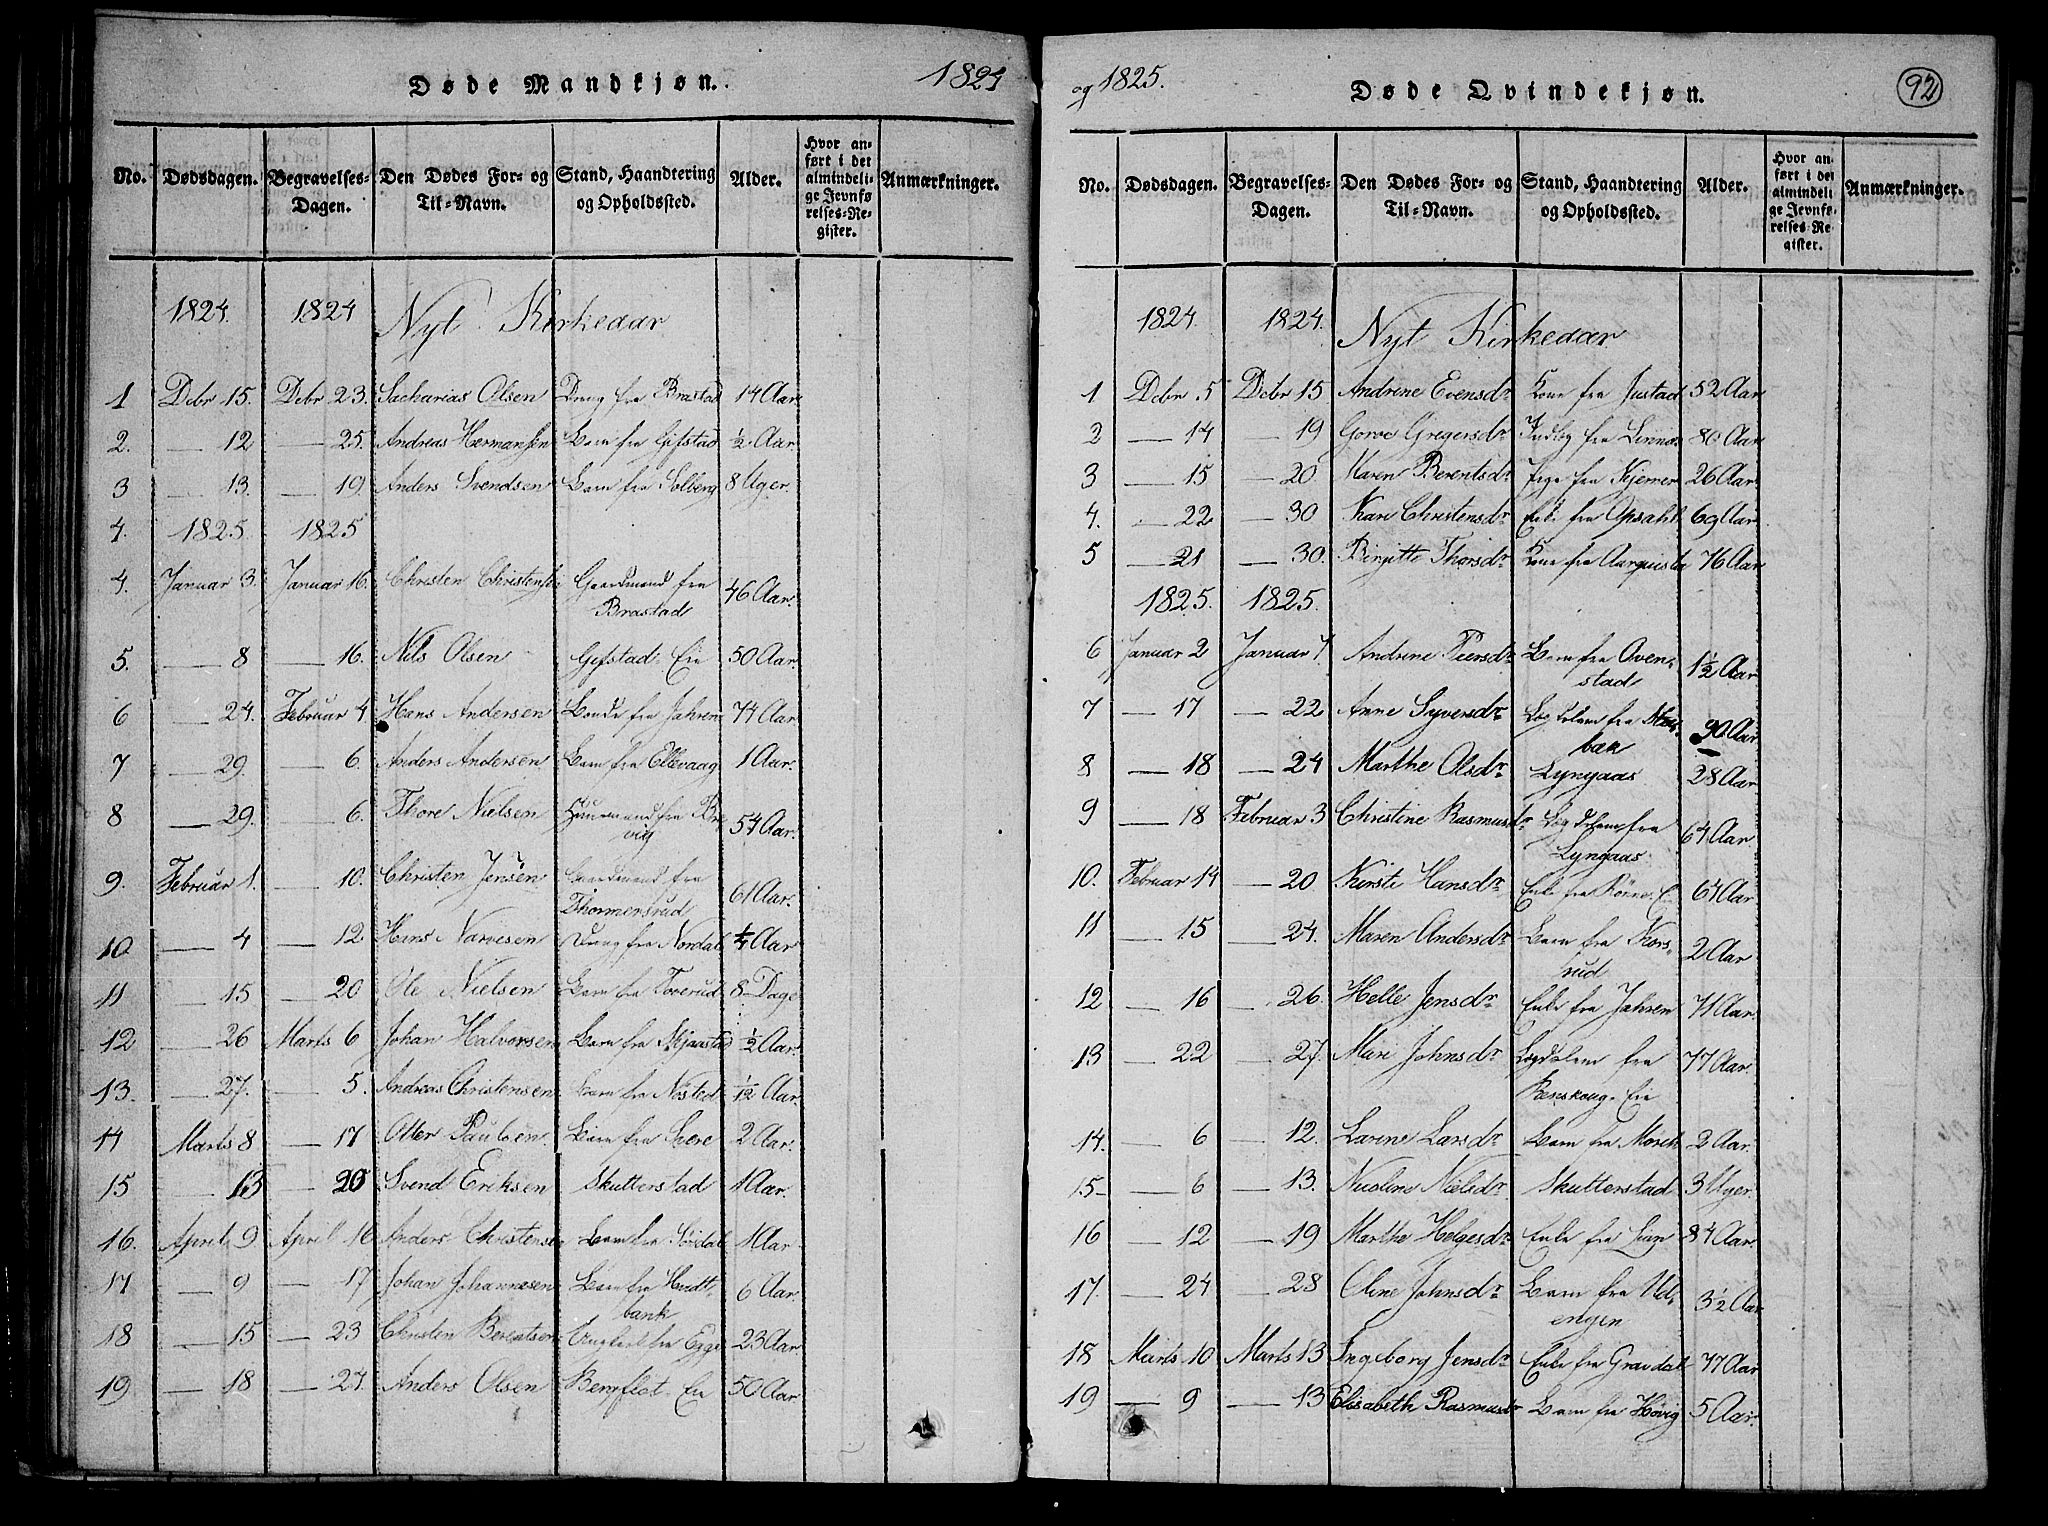 Døde Mandkjøn. 1824
No. Dødsdagen. Begravelses-Dagen. Den Dødes For- og Til-Navn. Stand, Haandtering og Opholdssted. Alder. Hvor anført i det almindelige Jevnførelses-Register. Anmærkninger.
1824. 1824 Nyt Kirkeaar
1 Dcbr 15. Dcbr 23. Sacharias Olsen Dreng fra Brastad 14 Aar
2. — 12 — 25. Andreas Hermansen Barn fra Gifstad ½ Aar
3 — 13. — 19. Anders Svendsen Barn fra Solberg 8 Uger.
4. 1825. 1825
4. Januar 3. Januar 16. Christen Christensen Gaardmand fra
Brastad 46 Aar.
5. — 8 — 16. Nils Olsen Gifstad Eie 50 Aar.
6 — 24. Februar 4 Hans Andersen Bonde fra Jahren 74 Aar.
7 — 29. — 6. Anders Andersen Barn fra Ellevaag 1 Aar.
8 — 29. — 6. Thore Nielsen Huusmand fra
vig 54 Aar.
9. Februar 1. — 10. Christen Jensen Gaardmand fra
Thormersrud 61 Aar.
10 — 4 — 12 Hans Narvesen Dreng fra Nordal Aar
11 — 15 — 20 Ole Nielsen Barn fra Toverud 8 Dage
12 — 26 Marts 6 Johan Halvorsen Barn fra Skjaastad ½ Aar.
13. — 27. — 5. Andreas Christensen Barn fra Nøsted 1/12 Aar.
14 Marts 8 — 17 Otter Paulsen. Barn fra 2 Aar.
15 — 13 — 20 Svend Eriksen Skutterstad 1 Aar.
16. April 9 April 16 Anders Christensen Barn fra Sørdal 1 Aar
17 — 9 — 17 Johan Johannesen Barn fra
bank 6 Aar.
18 — 15 — 23 Christen Berentsen Ungkarl fra Egge 23 Aar.
19 — 18 — 24. Anders Olsen Bergflot Eie 50 Aar.
og 1825. Døde Qvindekjøn. 92
No. Dødsdagen. Begravelses-Dagen. Den Dødes For- og Til-Navn. Stand, Haandtering og Opholdssted. Alder. Hvor anført i det almindelige Jevnførelses-Register. Anmærkninger.
1824. 1824. Nyt Kirkeaar
1 Dcbr 5 Dcbr 15 Andrine Evensdr Kone fra Justad 52 Aar
2 — 14 — 19 Gorve Gregersdr Indlog fra Linnes 80 Aar
3 — 15 — 20 Karen Berentsdr Pige fra Kjerner 26 Aar
4. — 22 — 30 Kari Christensdr Enke fra Opsahl 69 Aar
5 — 21 — 30. Birgitte Thorsdr Kone fra Aarquisla 76 Aar
1825. 1825.
6 Januar 2 Januar 7. Andrine Peersdr Barn fra Oven-
stad 1½ Aar
7 — 17 — 22 Anne Syversdr Lægdslem fra
bæk 90 Aar
8 — 18 — 24 Marthe Olsdr Lyngaas 28 Aar
9 — 18 Februar 3 Christine Rasmusdr Lægdslem fra
Lyngaas 64 Aar
10. Februar 14 — 20 Kirsti Hansdr Enke fra Rørne E 64 Aar
11 — 15 — 24. Maren Andersdr Barn fra Kors-
rud 2 Aar
12 — 16 — 26. Helle Jensdr Enke fra Jahren 71 Aar.
13 — 22 — 27. Mari Johnsdr Lægdslem fra 77 Aar.
Renskoug Eie
14. — 6 — 12. Larine Larsdr Barn fra Moseth 2 Aar.
15- — 6 — 13. Nicoline Nielsdr Skutterstad 3 Uger.
16 — 12 — 19 Marthe Helgesdr Enke fra Lian 84 Aar.
17. — 24 — 28 Oline Johnsdr Barn fra Ud-
engen 3½ Aar
18 Marts 10 Marts 13 Ingeborg Jensdr Enke fra Gravdal 77 Aar
19 — 9 — 13 Elisabeth Rasmusdr Barn fra Høvig 5 Aar.